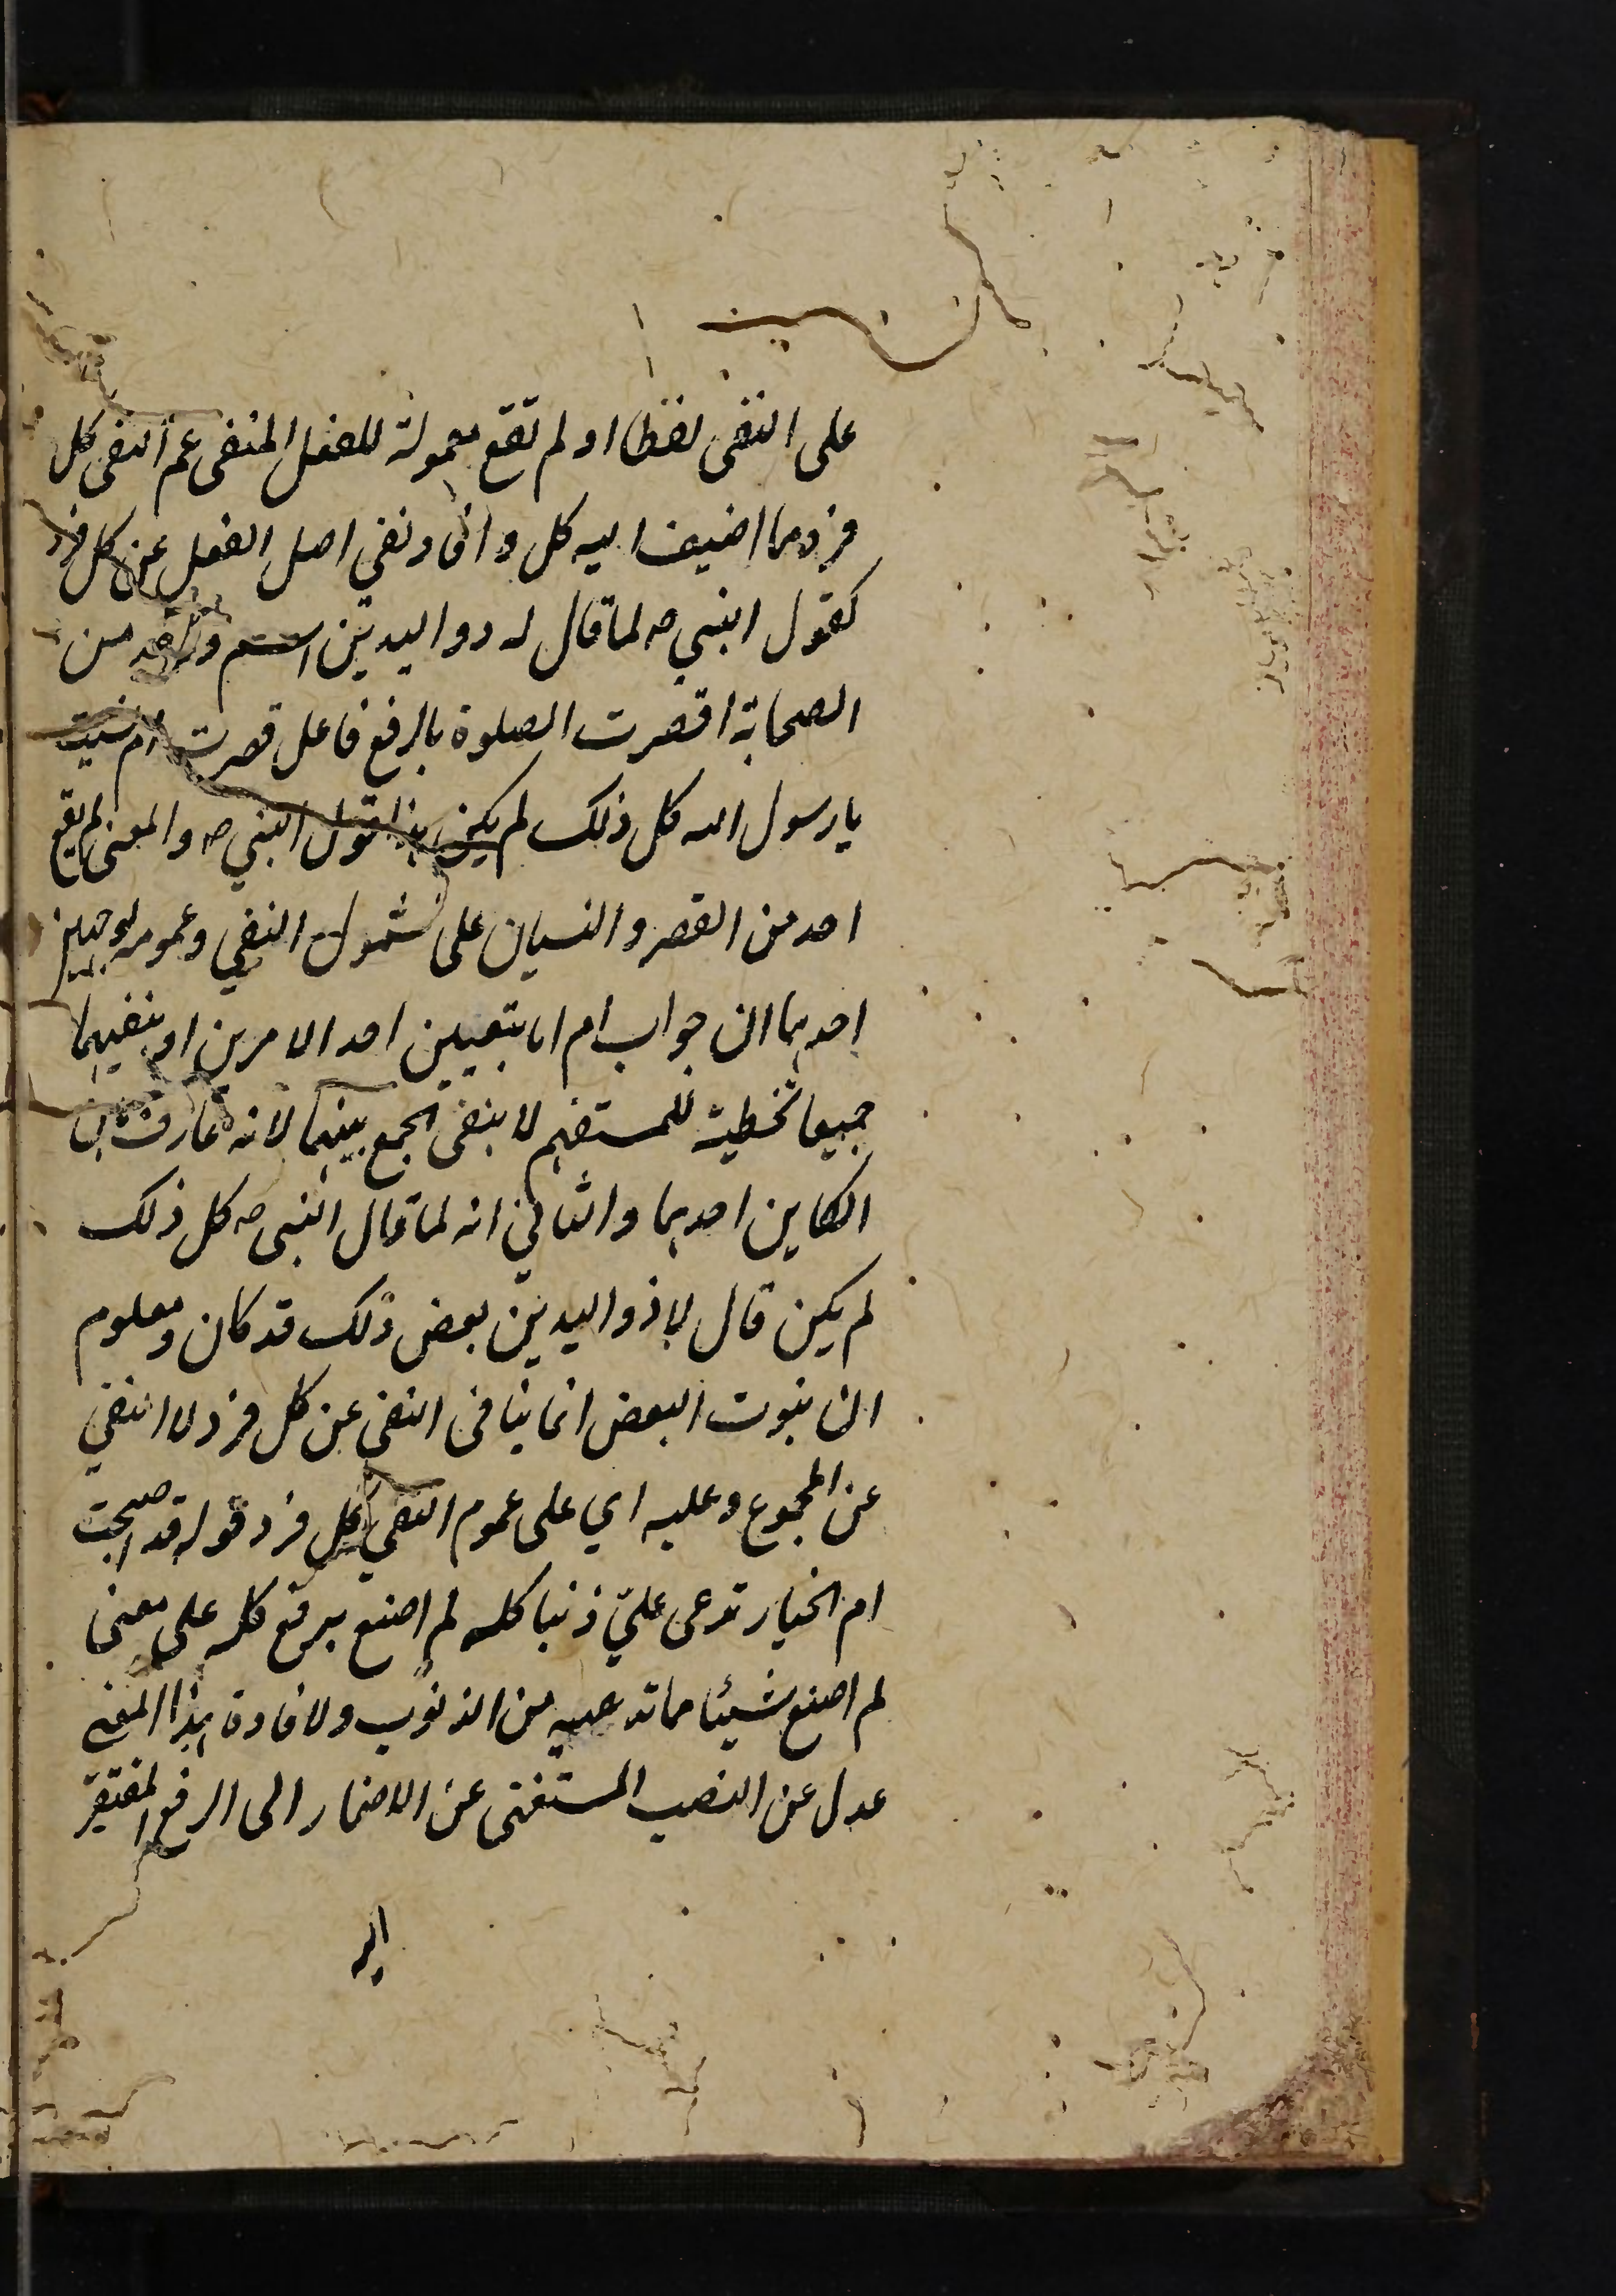 على النفى لفظا او لم تقع معمولة للفعل المنفى عم النفى كل
فرد مما اضيف اليه كل و افاد نفي اصل الفعل عن كل فرد
كقول النبي ص لما قال له ذو اليدين اسم واحد من
الصحابة اقصرت الصلوة بالرفع فاعل قصرت ام نسيت
يا رسول الله كل ذلك لم يكن هذا قول النبي ص والمعنى لم يقع
احد من القصر و النسيان على شمول النفي و عمومه لوجهين
احدهما ان جواب ام اما بتعيين احد الامرين او بنفيهما
جميعا تخطية للمستفهم لا بنفى الجمع بينهما لانه عارف بان
الكاين احدهما و الثاني انه لما قال النبى ص كل ذلك
لم يكن قال له ذو اليدين بعض ذلك قد كان و معلوم
ان ثبوت البعض انما ينافى النفى عن كل فرد لا النفي
عن المجموع و عليه اي على عموم النفي كل فرد قوله قد اصبحت
ام الخيار تدعى عليّ ذنبا كله لم اصنع برفع كله على معنى
لم اصنع شيئا مما تدعيه من الذنوب و لافادة هذا المعنى
عدل عن النصب المستغنى عن الاضمار الى الرفع المفتقر
اليه